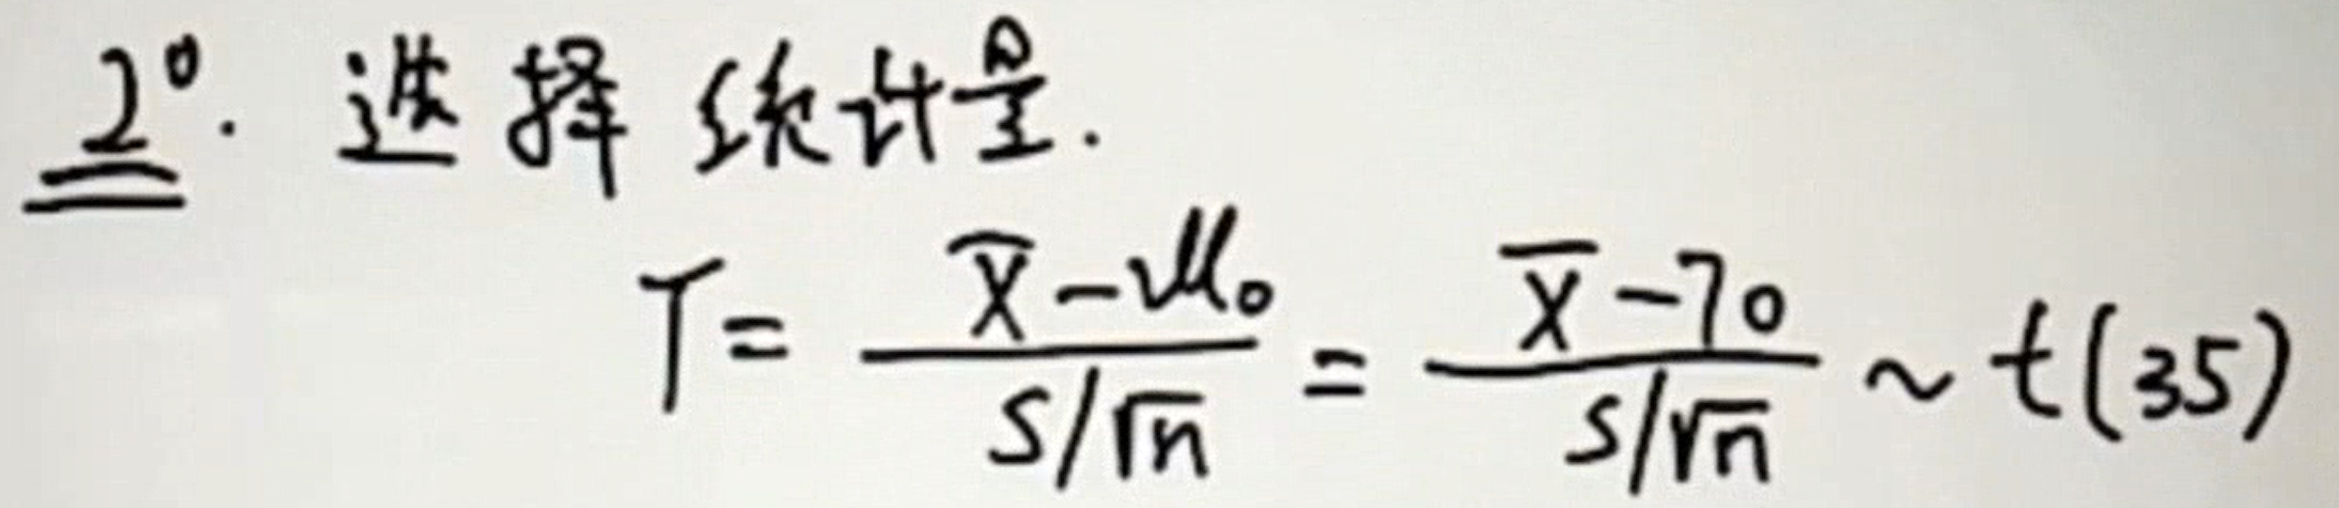 2°. 选择统计量.
T = \frac{\overline{X} - μ₀}{S/\sqrt{n}} = \frac{\overline{X} - 70}{S/\sqrt{n}} ~ t(35)